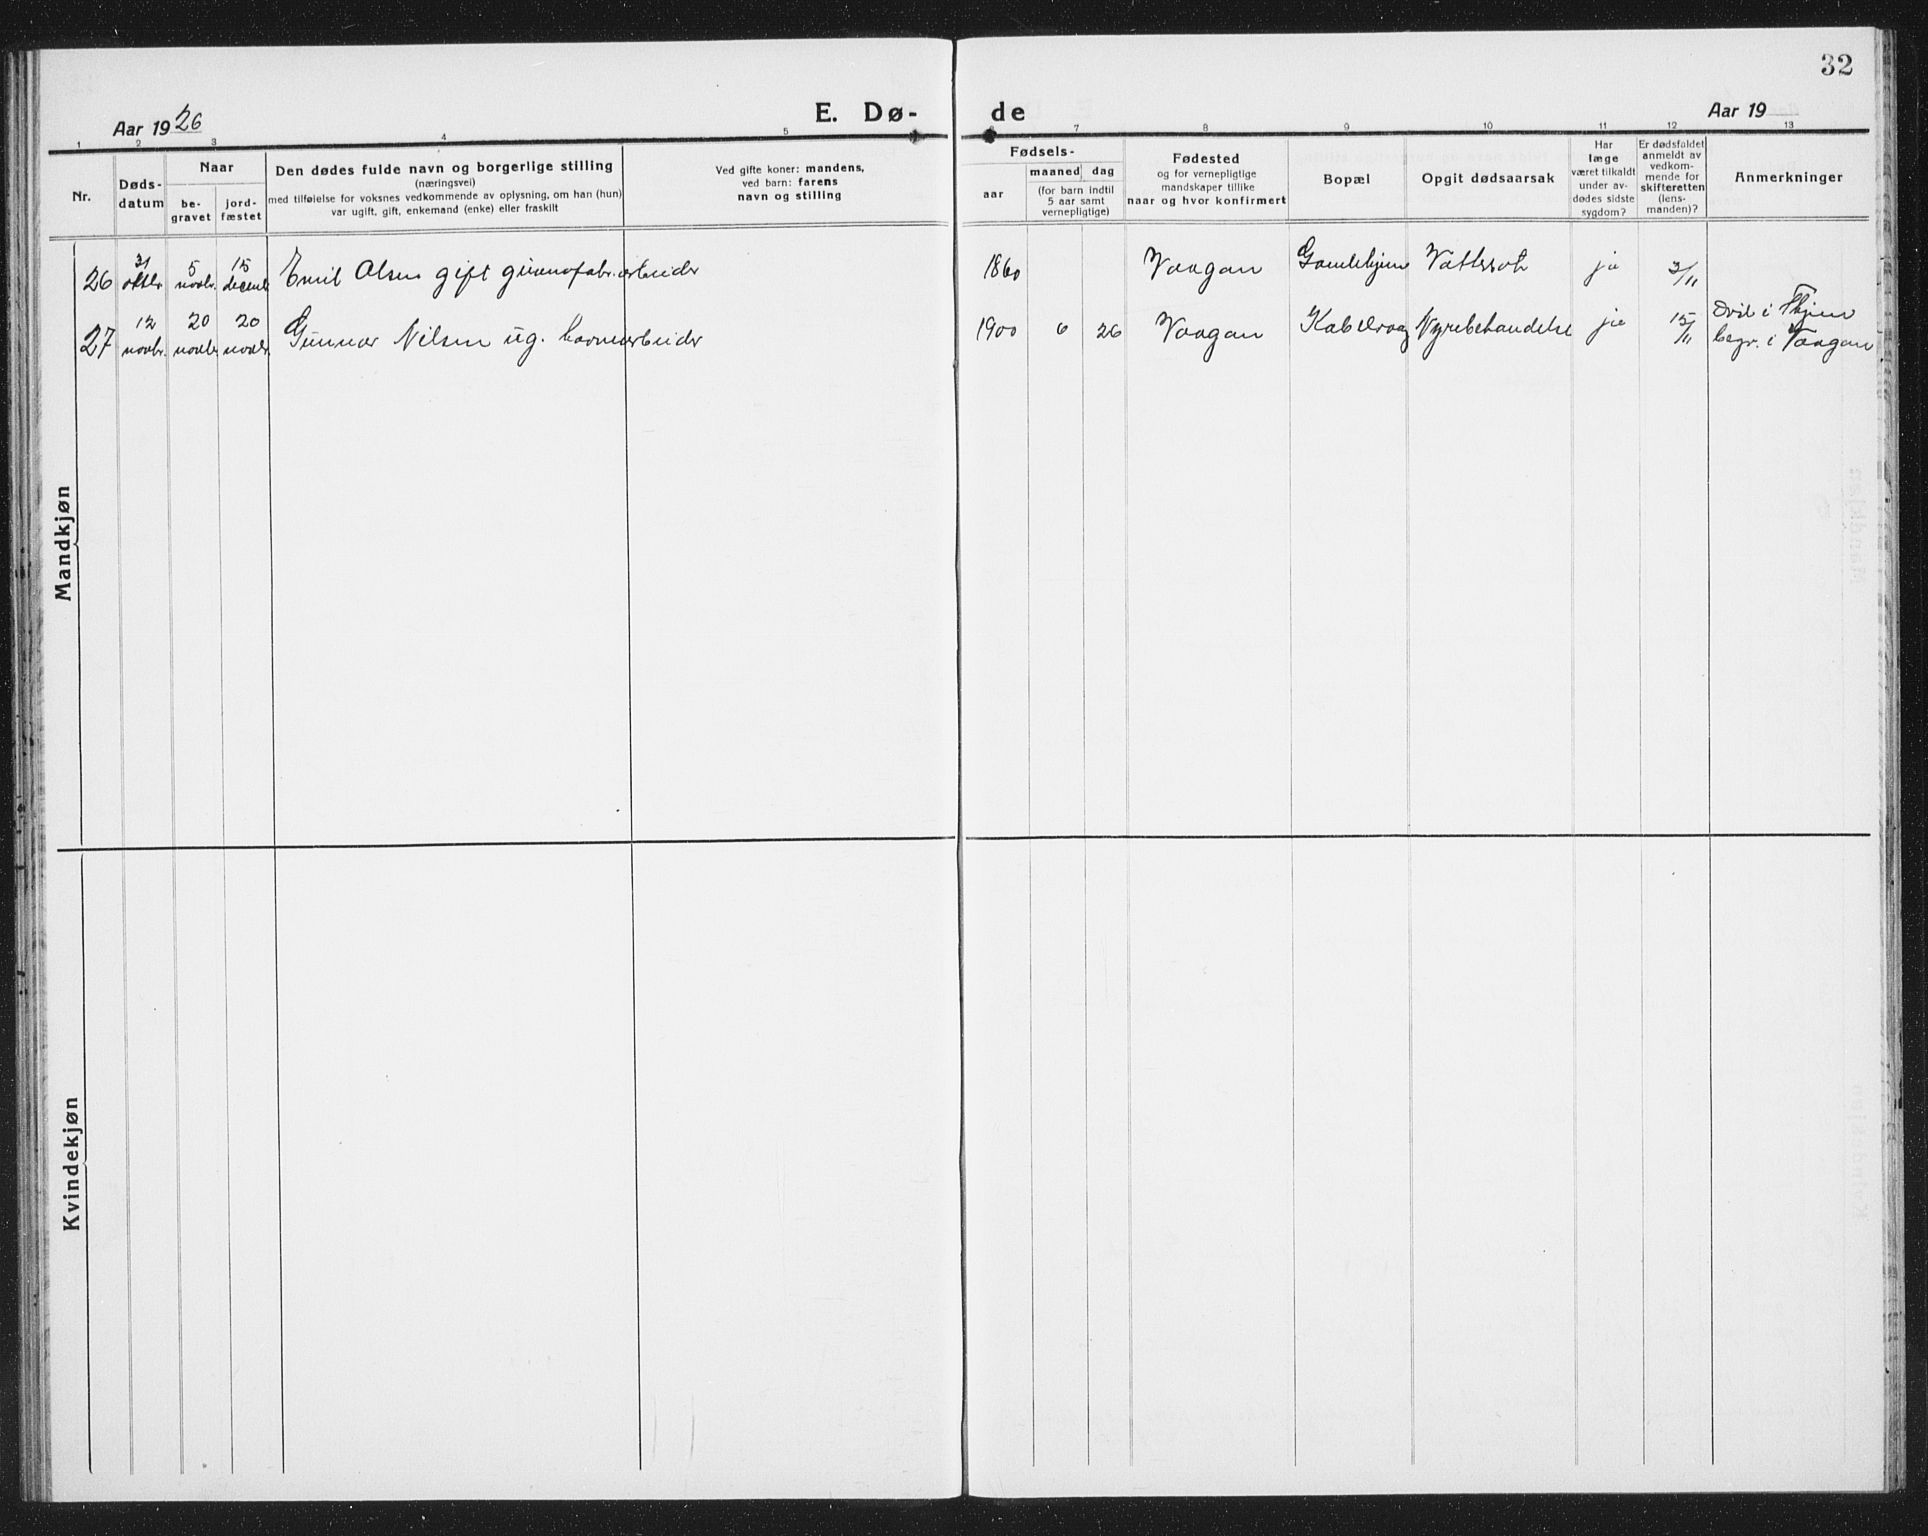 32
Aar 1926 E. Dø- de Aar 19
1 2 3 4 5 6 7 8 9 10 11 12 13
Nr.
Døds-
datum
Naar
be-
gravet
jord-
fæstet
Den dødes fulde navn og borgerlige stilling
(næringsvei)
med tilføielse for voksnes vedkommende av oplysning, om han (hun)
var ugift, gift, enkemand (enke) eller fraskilt
Ved gifte koner: mandens,
ved barn: farens
navn og stilling
Fødsels-
aar
maaned dag
(for barn indtil
5 aar samt
vernepligtige)
Fødested
og for vernepligtige
mandskaper tillike
naar og hvor konfirmert
Bopæl
Opgit dødsaarsak
Har
læge
været tilkaldt
under av-
dødes sidste
sygdom?
Er dødsfaldet
anmeldt av
vedkom-
mende for
skifteretten
(lens-
manden)?
Anmerkninger
Mandkjøn
26 31 oktbr. 5 novbr. 15 decemb. Emil Olsen gift guanofabr.arbeider 1860 Vaagan Gamlehjem Vattersot ja 3/11
27 12 novbr. 20 novbr. 20 novbr. Gunnar Nilsen ug. havnearbeider 1900 6 26 Vaagan Kabelvaag Nyrebetændelse ja 15/11
begr. i Vaagan
Kvindekjøn